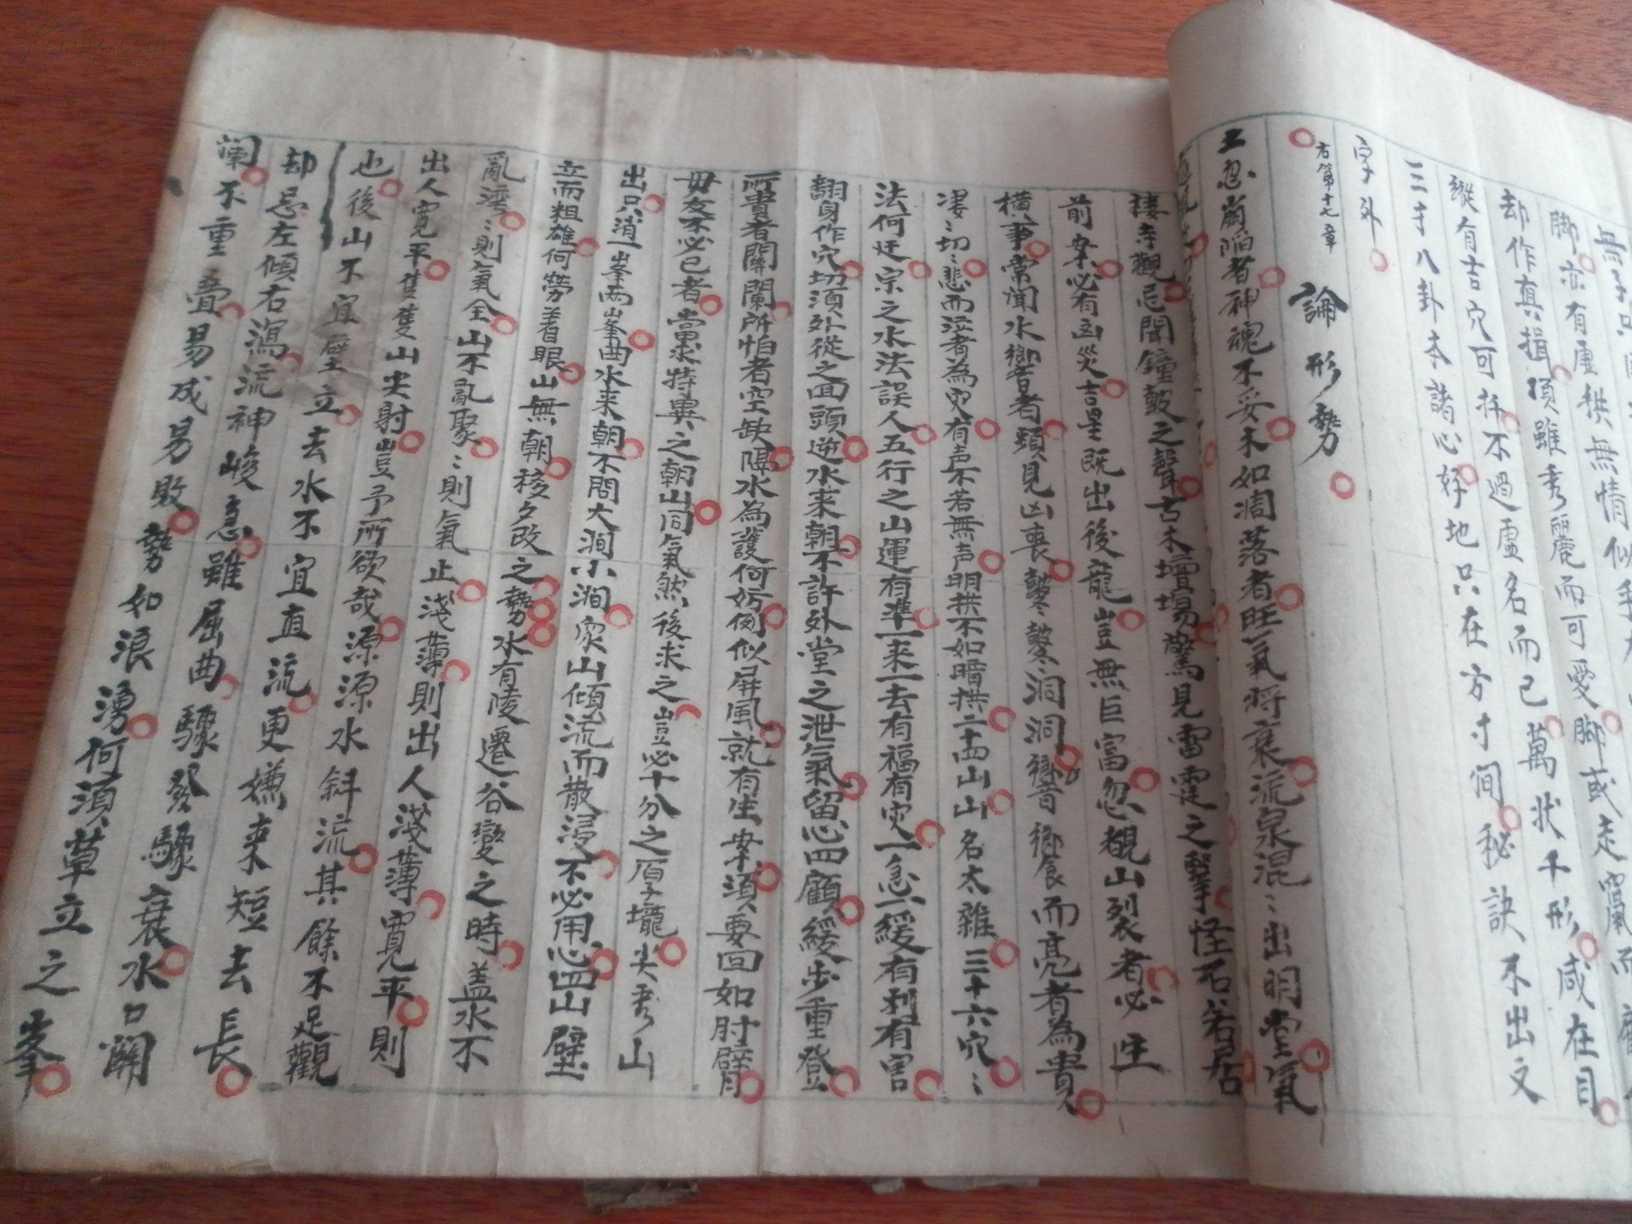 脚亦有虛拱無情似手
脚亦有虛秀麗而可愛脚或走竄而
却作真揖頂雖秀麗而可愛
縱有吉穴可扦不過虛名而已萬狀千形咸在目
三才八卦本諸心好地只在方寸間秘訣不出文
字外
右第十七章
論形勢
土忽崩陷者神魂不妥木如凋落者旺氣將衰流泉混〻出明堂氣
棲寺觀忌聞鐘鼓之聲古木壇場驚見雷霆之擊怪石若居
前案必有凶災吉星既出後龍豈無巨富忽覩山裂者必生
橫事常聞水響者頻見凶喪鼕鼕洞洞響而亮者為貴
凄〻切〻悲而泣者為灾有声不若無声明拱不如暗拱二十四山山名太雜三十六穴〻
法何迂宗之水法誤人五行之山運有準一來一去有福有灾一急一緩有利有害
翻身作穴切須外從之面頭逆水來朝不許外堂之泄氣留心四顧緩步重登
所貴者關闌所怕者空缺隔水為護何妨例似屏風就有生案須要回如肘臂
毋友不必己者當求特異之朝山同氣然後求之豈必十分之厚壠尖秀山
出只消一峯兩峯曲水來朝不問大澗小澗衆山傾流而散浸不必用心四山壁
立而粗雄何勞著眼山無朝移夕改之勢水有陵遷谷變之時蓋水不
亂灣〻則氣全山不亂聚〻則氣止淺薄則出人淺薄寬平則
出人寬平隻隻山尖射豈予所欲哉源源水斜流其餘不足觀
也後山不宜壁立去水不宜直流更嫌來短去長
却忌左傾右瀉流神峻急雖屈曲驟發驟衰水口關
闌不重疊易成易敗勢如浪湧何須草立之峯